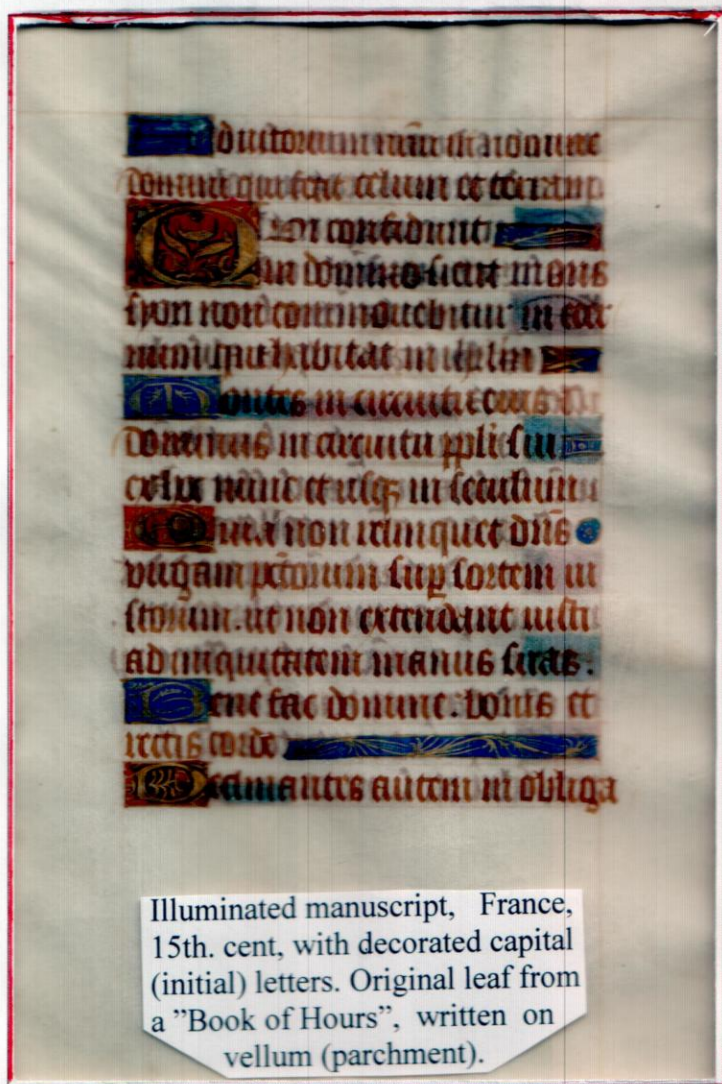 Adiutorium nr̃m in nomine
domini qui fecit celum et terram
Qui confidunt
in domino sicut mons
syon non commouebitur in eter
num qui habitat in ihr̃lm
Montes in circuitu eius et
dominus in circuitu ppli sui
ex hoc nunc et usqꝫ in seculum
Quia non relinquet dñs
virgam pctõrum suꝑ sortem iu
storum. ut non extendant iusti
ad iniquitatem manus suas.
Bene fac domine. bonis et
rectis corde
autem in obliga
Illuminated manuscript, France,
15th. cent, with decorated capital
(initial) letters. Original leaf from
a ”Book of Hours”, written on
vellum (parchment).